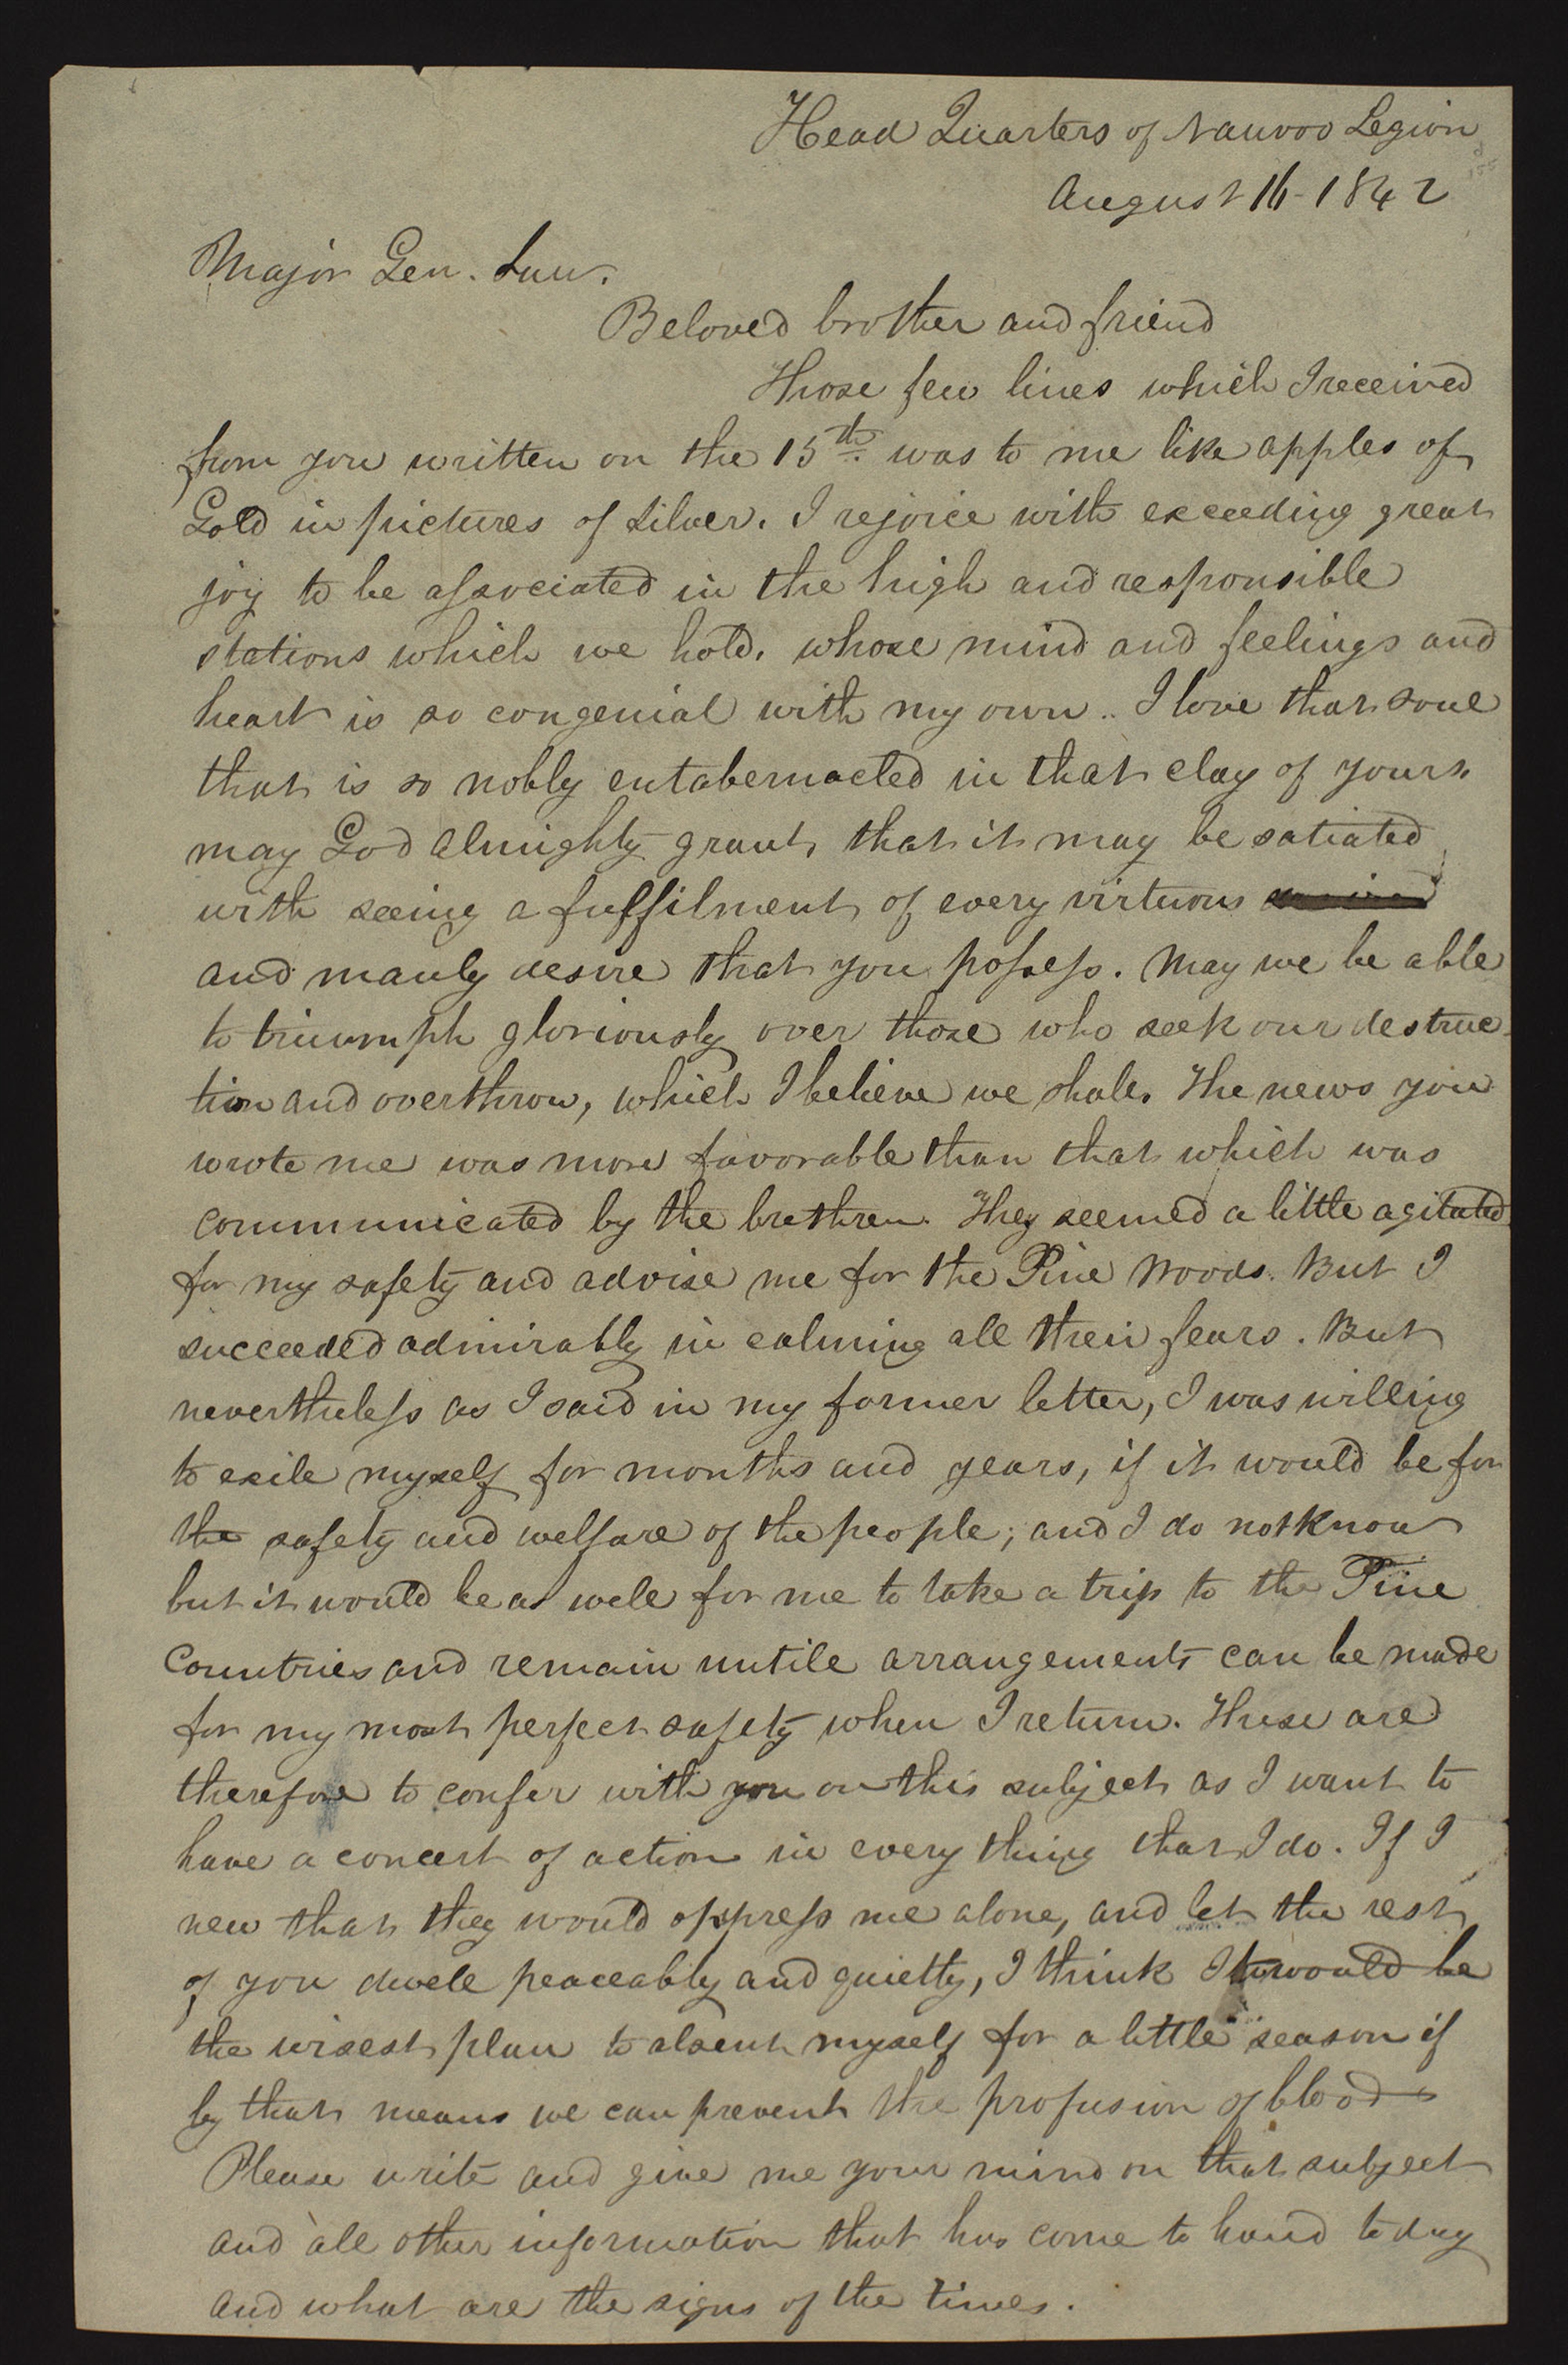 Head Quarters of Nauvoo Legion
August 16- 1842
Major Gen. Law.
Beloved brother and friend
Those few lines which I received
from you written on the 15th. was to me like apples of
Gold in pictures of Silver. I rejoice with exceeding great
joy to be associated in the high and responsible
stations which we hold, whose mind and feelings and
heart is so congenial with my own.. I love that soul
that is so nobly entabernacled in that clay of yours.
may God Almighty grant, that it may be satiated
with seeing a fulfilment of every virtuous
and manly desire that you possess. May we be able
to triumph gloriously over those who seek our destruc-
tion and overthrow, which I believe we shall. The news you
wrote me was more favorable than that which was
communicated by the brethren. They seemed a little agitated
for my safety and advise me for the Pine Woods. But I
succeeded admirably in calming all their fears. But
nevertheless as I said in my former letter, I was willing
to exile myself for months and years, if it would be for
the safety and welfare of the people; and I do not know
but it would be as well for me to take a trip to the Pine
Countries and remain untill arrangements can be made
for my most perfect safety when I return. These are
therefore to confer with you on this subject as I want to
have a concert of action in every thing that I do. If I
new that they would oppress me alone, and let the rest
of you dwell peaceably and quietly, I think It would be
the wisest plan to absent myself for a little season if
by that means we can prevent the profusion of blood-
Please write and give me your mind on that subject
and all other information that has come to hand today
and what are the signs of the times.